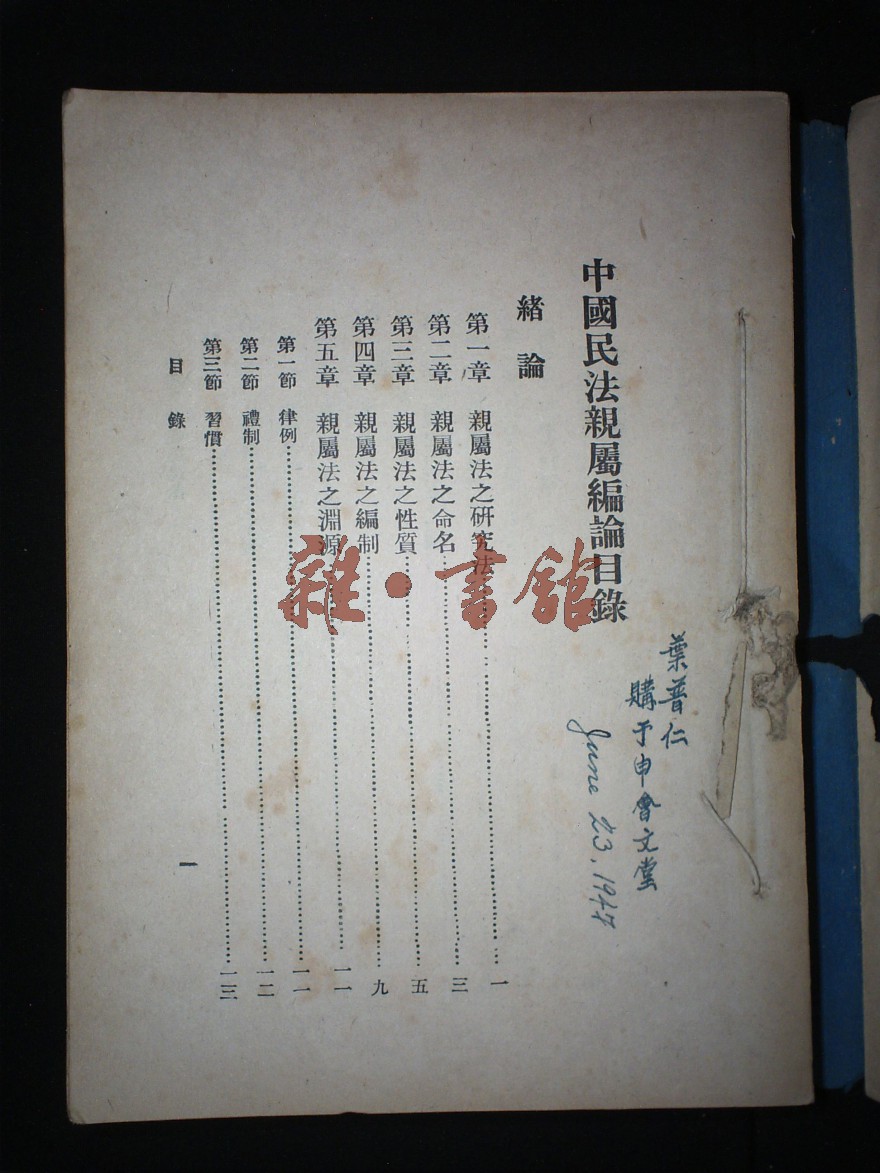 中國民法親屬編論目錄
緒論
第一章 親屬法之研究法……一
第二章 親屬法之命名……三
第三章 親屬法之性質……五
第四章 親屬法之編制……九
第五章 親屬法之淵源……一一
第一節 律例……一一
第二節 禮制……一二
第三節 習慣……一三
目錄
一
葉普仁
購于申會文堂
June 23, 1947
雜·書館